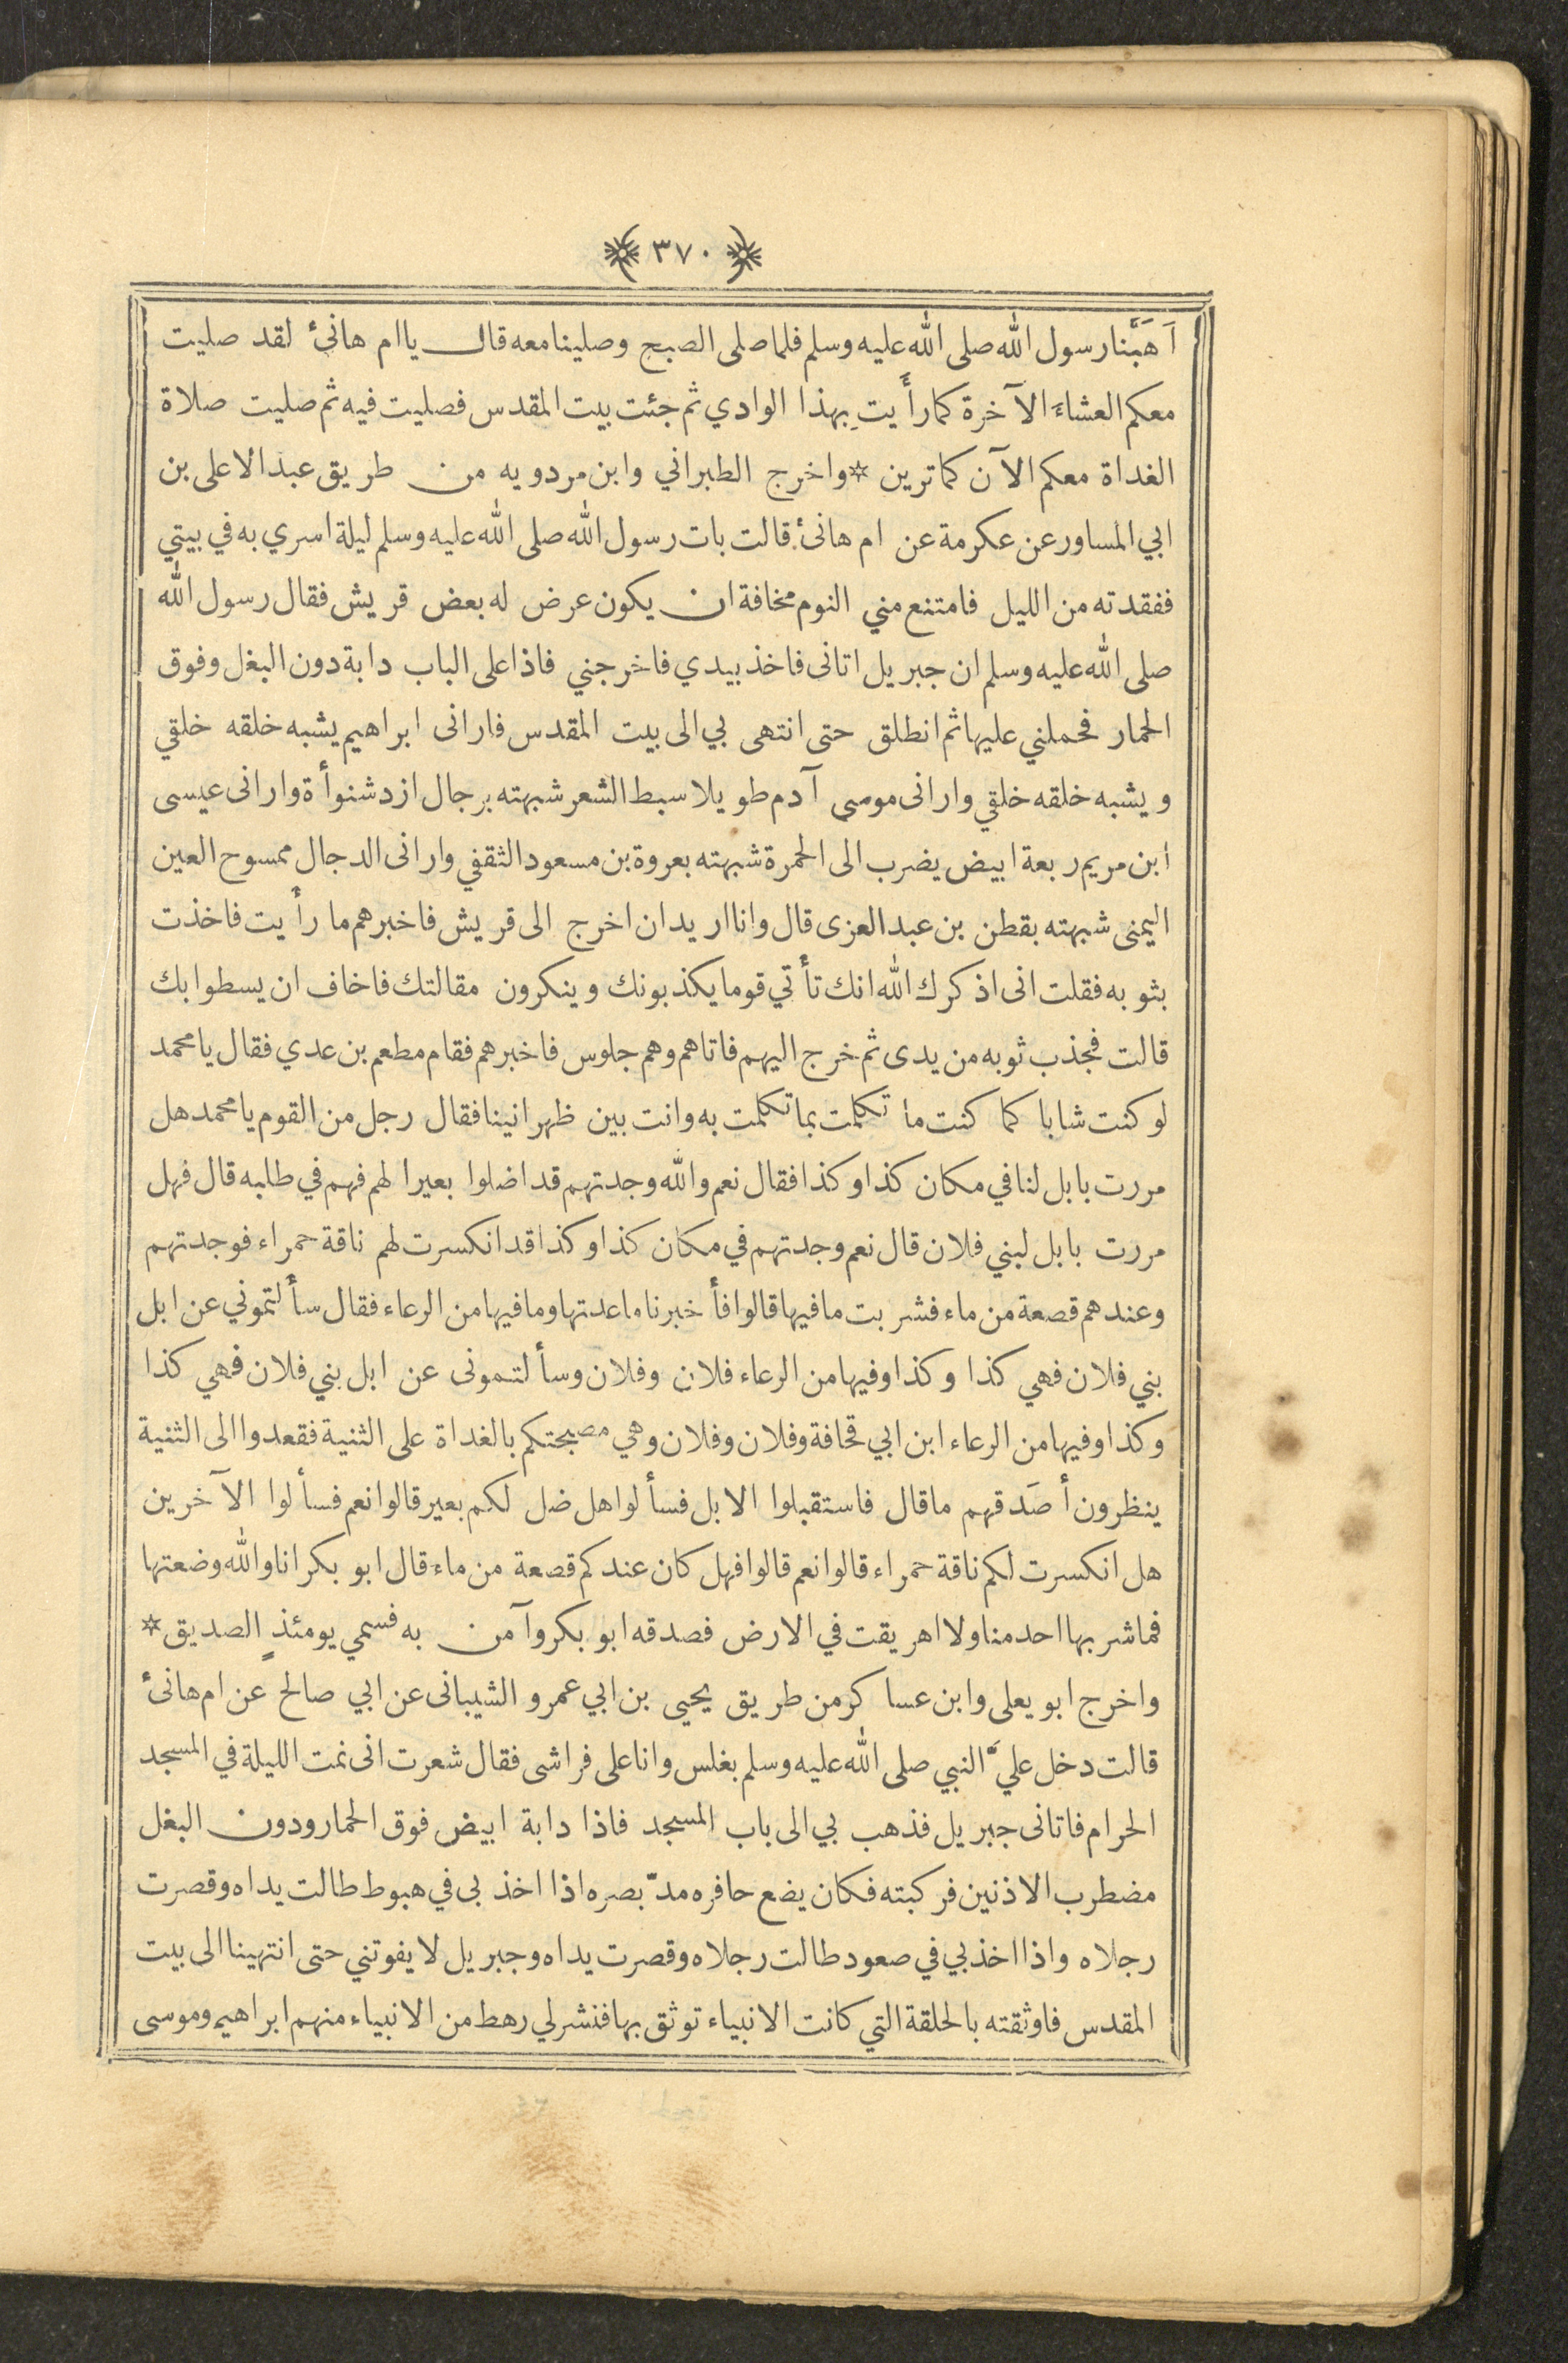 ٣٧٠
اَهَبَّنا رسول الله صلى الله عليه وسلم فلما صلى الصبح وصلينا معه قال يا ام هانئ لقد صليت
معكم العشاءَ الآخرة كما رأَيتِ بهذا الوادي ثم جئت بيت المقدس فصليت فيه ثم صليت صلاة
الغداة معكم الآن كما ترين * واخرج الطبراني وابن مردويه من طريق عبد الاعلى بن
ابي المساور عن عكرمة عن ام هانئ قالت بات رسول الله صلى الله عليه وسلم ليلة اسري به في بيتي
ففقدته من الليل فامتنع مني النوم مخافة ان يكون عرض له بعض قريش فقال رسول الله
صلى الله عليه وسلم ان جبريل اتانى فاخذ بيدي فاخرجني فاذا على الباب دابة دون البغل وفوق
الحمار فحملني عليها ثم انطلق حتى انتهى بي الى بيت المقدس فارانى ابراهيم يشبه خلقه خلقي
ويشبه خلقه خلقي وارانى موسى آدم طويلا سبط الشعر شبهته برجال ازد شنوأة وارانى عيسى
ابن مريم ربعة ابيض يضرب الى الحمرة شبهته بعروة بن مسعود الثقفي وارانى الدجال ممسوح العين
اليمنى شبهته بقطن بن عبد العزى قال وانا اريد ان اخرج الى قريش فاخبرهم ما رأيت فاخذت
بثوبه فقلت انى اذكرك الله انك تأتي قوما يكذبونك وينكرون مقالتك فاخاف ان يسطوا بك
قالت فجذب ثوبه من يدى ثم خرج اليهم فاتاهم وهم جلوس فاخبرهم فقام مطعم بن عدي فقال يا محمد
لو كنت شابا كما كنت ما تكلمت بما تكلمت به وانت بين ظهرانينا فقال رجل من القوم يا محمد هل
مررت بابل لنا في مكان كذا وكذا فقال نعم والله وجدتهم قد اضلوا بعيرا لهم فهم في طلبه قال فهل
مررت بابل لبني فلان قال نعم وجدتهم في مكان كذا وكذا قد انكسرت لهم ناقة حمراء فوجدتهم
وعندهم قصعة من ماء فشربت ما فيها قالوا فأخبرنا ما عدتها وما فيها من الرعاء فقال سألتموني عن ابل
بني فلان فهي كذا وكذا وفيها من الرعاء فلان وفلان وسألتمونى عن ابل بني فلان فهي كذا
وكذا وفيها من الرعاء ابن ابي قحافة وفلان وفلان وهي مصبحتكم بالغداة على الثنية فقعدوا الى الثنية
ينظرون أصَدقهم ما قال فاستقبلوا الابل فسألوا هل ضل لكم بعير قالوا نعم فسألوا الآخرين
هل انكسرت لكم ناقة حمراء قالوا نعم قالوا فهل كان عندكم قصعة من ماء قال ابو بكر انا والله وضعتها
فما شربها احد منا ولا اهريقت في الارض فصدقه ابو بكر وآمن به فسمي يومئذٍ الصديق *
واخرج ابو يعلى وابن عساكر من طريق يحيى بن ابي عمرو الشيبانى عن ابي صالح عن ام هانئ
قالت دخل عليَّ النبي صلى الله عليه وسلم بغلس وانا على فراشى فقال شعرت انى نمت الليلة في المسجد
الحرام فاتانى جبريل فذهب بي الى باب المسجد فاذا دابة ابيض فوق الحمار ودون البغل
مضطرب الاذنين فركبته فكان يضع حافره مدّ بصره اذا اخذ بى في هبوط طالت يداه وقصرت
رجلاه واذا اخذ بي في صعود طالت رجلاه وقصرت يداه وجبريل لا يفوتني حتى انتهينا الى بيت
المقدس فاوثقته بالحلقة التي كانت الانبياء توثق بها فنشر لي رهط من الانبياء منهم ابراهيم وموسى